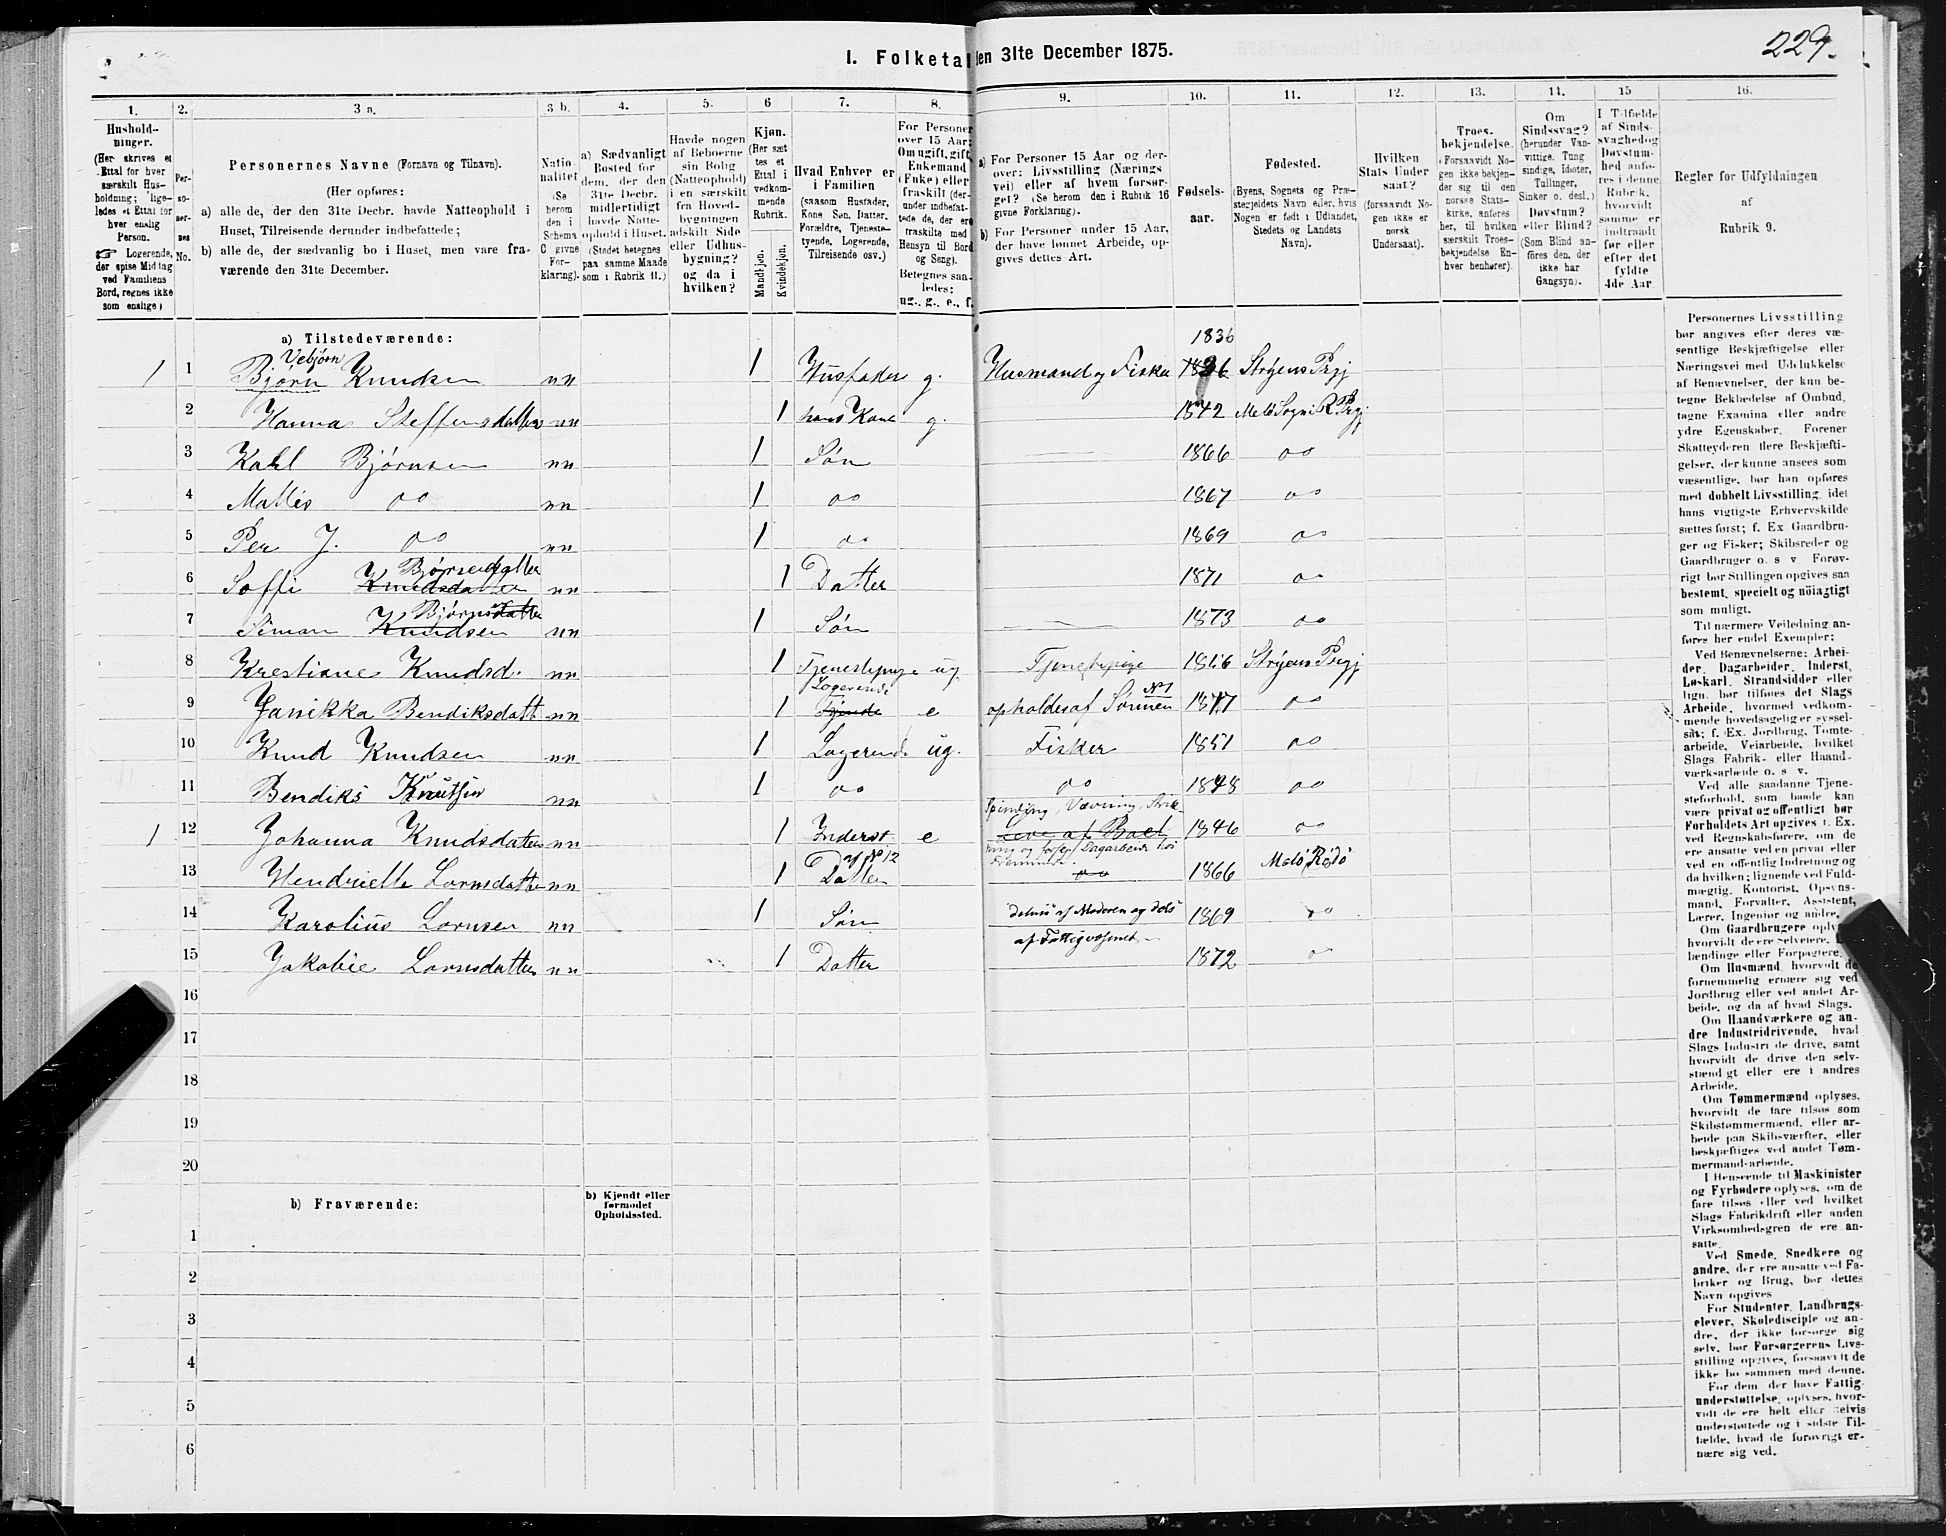 229.
I. Folketal den 31te December 1875.
1. 2. 3 a. 3 b. 4. 5. 6 7. 8. 9. 10. 11. 12. 13. 14. 15 16.
Hushold-
ninger.
(Her skrives et
Ettal for hver
særskilt Hus-
holdning; lige-
ledes et Ettal for
hver enslig
Person.
☞ Logerende,
der spise Middag
ved Familiens
Bord, regnes ikke
som enslige)
Per-
so-
ner-
nes
No.
Personernes Navne (Fornavn og Tilnavn).
(Her opføres:
a) alle de, der den 31te Decbr. havde Natteophold i
Huset, Tilreisende derunder indbefattede;
b) alle de, der sædvanlig bo i Huset, men vare fra-
værende den 31te December.
Natio-
nalitet
(Se
herom
den i
Schema
C givne
For-
klaring).
a) Sædvanligt
Bosted for
dem, der den
31te Decbr.
midlertidigt
havde Natte-
ophold i Huset.
(Stedet betegnes
paa samme Maade
som i Rubrik 11.)
Havde nogen
af Beboerne
sin Bolig
(Natteophold)
i en særskilt
fra Hoved-
bygningen
adskilt Side
eller Udhus-
bygning?
og da i
hvilken?
Kjøn.
(Her sæt
tes et
Ettal i
vedkom-
mende
Rubrik.
Mandkjøn.
Kvindekjøn.
Hvad Enhver er
i Familien
(saasom Husfader,
Kone Søn, Datter,
Forældre, Tjeneste-
tyende, Logerende,
Tilreisende osv.)
For Personer
over 15 Aar:
Om ugift, gift,
Enkemand
(Enke) eller
fraskilt (der-
under indbefat-
tede de, der ere
fraskilte med
Hensyn til Bord
og Seng).
Betegnes saa-
ledes:
ug., g., e., f.
a) For Personer 15 Aar og der-
over: Livsstilling (Nærings
vei) eller af hvem forsør-
get? (Se herom den i Rubrik 16
givne Forklaring).
b) For Personer under 15 Aar,
der have lønnet Arbeide, op-
gives dettes Art.
Fødsels-
aar.
Fødested.
(Byens, Sognets og Præ-
stegjeldets Navn eller, hvis
Nogen er født i Udlandet,
Stedets og Landets
Navn).
Hvilken
Stats Under
saat?
(forsaavidt No-
gen ikke er
norsk
Undersaat).
Troes-
bekjendelse.
(Forsaavidt No-
gen ikke bekjen-
der sig til den
norske Stats-
kirke, anføres
her, til hvilken
særskilt Troes-
bekjendelse En-
hver henhører).
Om
Sindssvag?
(herunder Van-
vittige, Tung
sindige, Idioter,
Tullinger,
Sinker o. desl.)
Døvstum?
eller Blind?
(Som Blind an-
føres den, der
ikke har
Gangsyn).
I Tilfælde
af Sinds-
svaghed og
Døvstum-
hed anfø-
res i denne
Rubrik,
hvorvidt
samme er
indtraadt
før eller
efter det
fyldte
4de Aar.
Regler for Udfyldningen
af
Rubrik 9.
a) Tilstedeværende:
Vebjørn 1836
1 1 Bjørn Knudsen nn 1 Husfader g. Husmand og Fisker 1836 Strøens Prgj
2 Hanna Steffensdatter nn 1 hans Kone g. 1842 Melø Sogn R Prgj
3 Kahl Bjørnsen nn 1 Søn 1866 oo
4 Mattis oo nn 1 oo 1867 oo
5 Per J. oo nn 1 oo 1869 oo
Bjørnsdatter
6 Soffi Knudsdatter nn 1 Datter 1871 oo
Bjørnsdatter
7 Siman Knudsen nn 1 Søn 1873 oo
8 Krestiane Knudsd. nn 1 Tjenestepige ug. Tjenestepige 1856 Strøens Prgj
Logerende No 1
9 Janikka Bendiksdatt nn 1 e opholdes af Sønnen 1817 oo
10 Knud Knudsen nn 1 Logerende ug. Fisker 1851 oo
11 Bendiks Knutsen nn 1 oo oo 1848 oo
Spinding, Vævning, Strik-
1 12 Johanna Knudsdatter nn 1 Inderst e 1846 oo
ning og forsør. Dagarbeide hos
af No 12
13 Hendriette Larnsdatter nn 1 Datter oo 1866 Melø Rødø
14 Karolius Larnsen nn 1 Søn delvis af Moderen og dels 1869 oo
af Fattigvæsenet
15 Jakobie Larnsdatter nn 1 Datter 1872 o
16
17
18
19
20
b) Fraværende:
b) Kjendt eller
formodet
Opholdssted.
1
2
3
4
5
6
Personernes Livsstilling
bør angives efter deres væ-
sentlige Beskjæftigelse eller
Næringsvei med Udelukkelse
af Benævnelser, der kun be-
tegne Beklædelse af Ombud,
tagne Examina eller andre
ydre Egenskaber. Forener
Skatteyderen flere Beskjæfti-
gelser, der kunne ansees som
væsentlige, bør han opføres
med dobbelt Livsstilling, idet
hans vigtigste Erhvervskilde
sættes først; f. Ex Gaardbru-
ger og Fisker; Skibsreder og
Gaardbruger o. s v Forøv-
rigt bør Stillingen opgives saa
bestemt, specielt og nöiagtigt
som muligt.
Til nærmere Veiledning an-
føres her endel Exempler:
Ved Benævnelserne: Arbei-
der, Dagarbeider, Inderst,
Løskarl, Strandsidder eller
lign. bør tilføies det Slags
Arbeide, hvormed vedkom-
mende hovedsagelig er syssel-
sat; f. Ex. Jordbrug, Tomte-
arbeide, Veiarbeide, hvilket
Slags Fabrik- eller Haand-
værksarbeide o. s. v.
Ved alle saadanne Tjene-
steforhold, som baade kan
være privat og offentligt bør
Forholdets Art opgives f. Ex.
ved Regnskabsførere, om de
ere ansatte ved en privat eller
ved en offentlig Indretning og
da hvilken; lignende ved Fuld-
mægtig, Kontorist, Opsyns-
mand, Forvalter, Assistent,
Lærer, Ingeniør og andre.
Om Gaardbrugere oplyses,
hvorvidt de ere Selveiere, Lei-
lændinge eller Forpagtere.
Om Husmænd, hvorvidt de
fornemmelig ernære sig ved
Jordbrug eller ved andet Ar-
beide, og da af hvad Slags.
Om Haandværkere og an-
dre Industridrivende, hvad
Slags Industri de drive, samt
hvorvidt de drive den selv-
stændigt eller ere i andres
Arbeide.
Om Tømmermænd oplyses,
hvorvidt de fare tilsøs som
Skibstømmermænd, eller ar-
beide paa Skibsværfter, eller
beskjæftiges ved andet Tøm-
mermand-arbeide.
I Henseende til Maskinister
og Fyrbødere oplyses, om de
fare tilsøs eller ved hvilket
Slags Fabrikdrift eller anden
Virksomhedsgren de ere an-
satte.
Ved Smede, Snedkere og
andre, der ere ansatte ved Fa-
briker og Brug, bør dettes
Navn opgives
For Studenter, Landbrugs-
elever, Skoledisciple og an-
dre, der ikke forsørge sig
selv, bør Forsørgerens Livs-
stilling opgives, forsaavidt de
ikke bo sammen med denne.
For dem, der have Fattig-
understøttelse, oplyses, hvor-
vidt de ere helt eller delvis
understøttede og i sidste Til-
fælde, hvad de forøvrigt er-
nære sig ved.